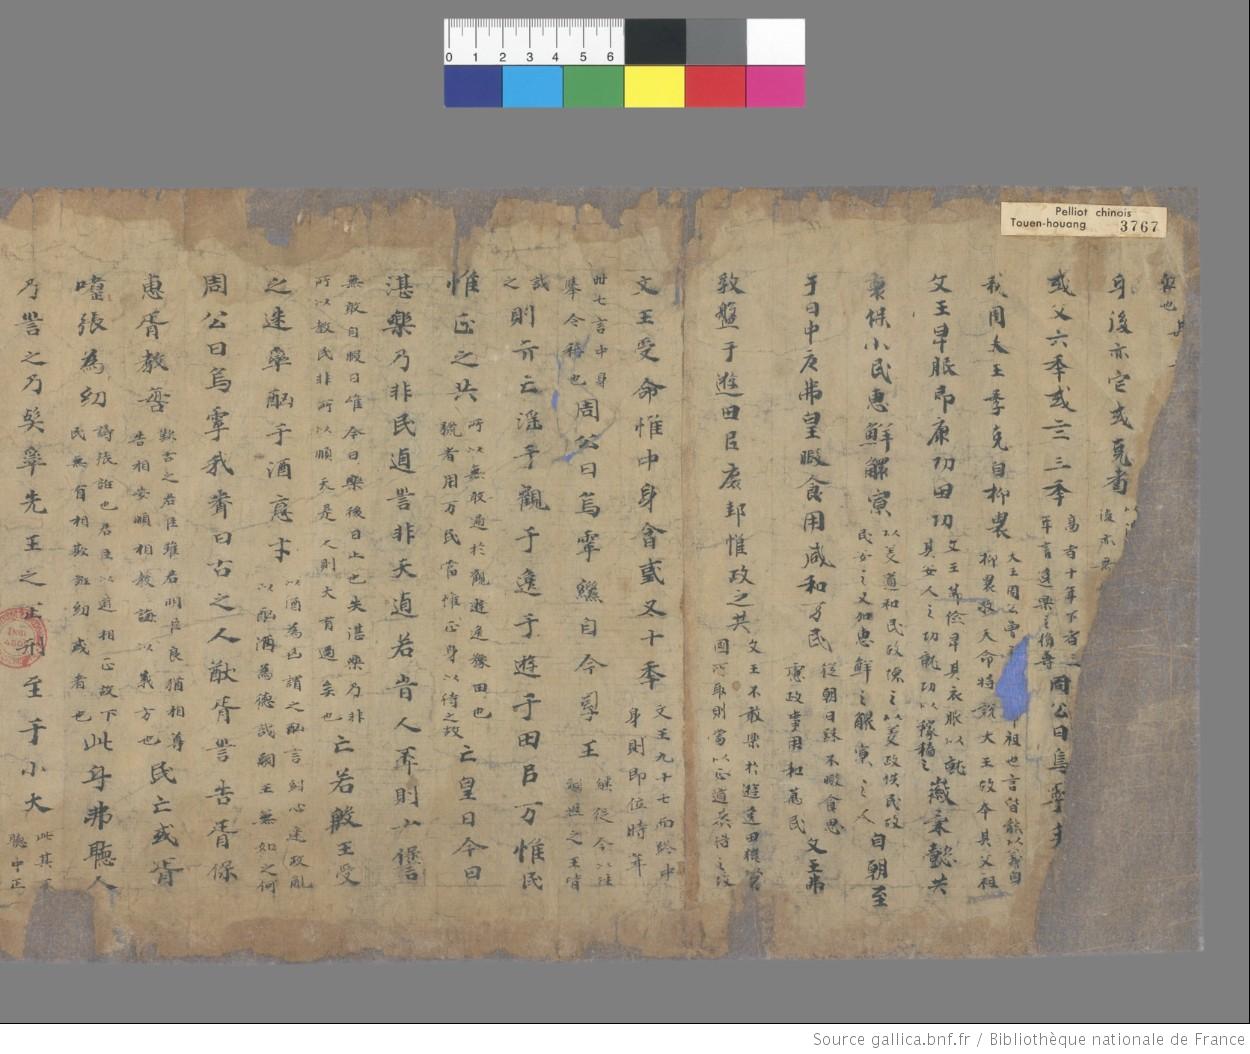 Pelliot chinois
Touen-houang 3767
0 1 2 3 4 5 6
也 其
後亦它或克壽
後亦
或父六季或三三季
高者十年下者三
年言逸樂之損壽
周公曰烏雩
我周大王季克自抑畏
大王周公曾
祖也言皆能以義自
抑畏敬天命特説大王故本其父祖
文王早服即康功田功
文王節儉早其衣服以就
其安人之功就功以稼穡之
徽柔懿共
裹保小民惠鮮鰥寡
以美道和民政懷之以美政恢民政
民安之又加惠鮮之鰥寡之人
自朝至
于日中仄弗皇暇食用咸和万民
從朝日昳不暇食思
慮政事用和萬民
文王弗
敢盤于遊田吕庶邦惟政之共
文王不敢樂於遊逸田獵眾
國所取則當以正道共待之故
文王受命惟中身會或五十季
文王九十七而終中
身則即位時年
卌七言中身
舉全稱也
周公曰烏雩繼自今孠王
繼從今以往
嗣世之王皆
戒
之
則亓亡滛于觀于逸于遊于田吕万惟民
惟正之共
所以無敢過於觀遊逸豫田也
獵者用万民當惟正身以待之故
亡皇曰今日
湛樂乃非民逌訾非天逌若旹人丕則大𠎝
無敢自暇曰惟今日樂後日止也夫湛樂乃非
所以教民非所以順天是人則大有過矣也
亡若殷王受
之迷率酗于酒惪才
以酒為凶謂之酗言紂心迷政亂
以酗酒為德哉嗣王無如之何
周公曰烏雩我聋曰古之人猷胥訾告胥保
惠胥教誨
歎古之君臣雖君明臣良猶相導
告相安順相教誨以義方也
民亡或胥
嚋張為幻
譸張誑也君臣以道相正故下
民無有相欺誑幻惑者也
此身弗聽人
乃訾之乃䜌率先王之正刑至于小大
此其不
聽中正
Source gallica.bnf.fr / Bibliothèque nationale de France